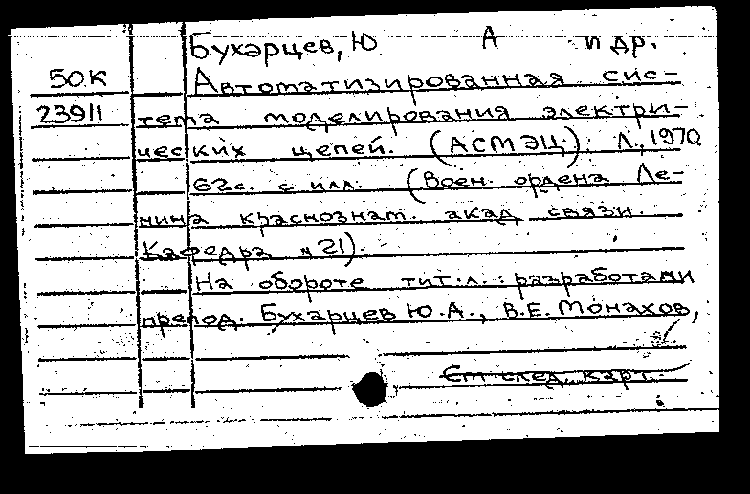 Бухарцев, Ю А и др.
50К Автоматизированная сис-
239/1 тема моделирования электри-
ческих цепей. (АСМЭЦ). Л., 1970
62с. с илл. (Воен. ордена Ле-
нина краснознам. акад связи.
Кафедра №21).
На обороте тит. л.: разработали
препод. Бухарцев Ю.А., В.Е. Монахов,
См след. карт.